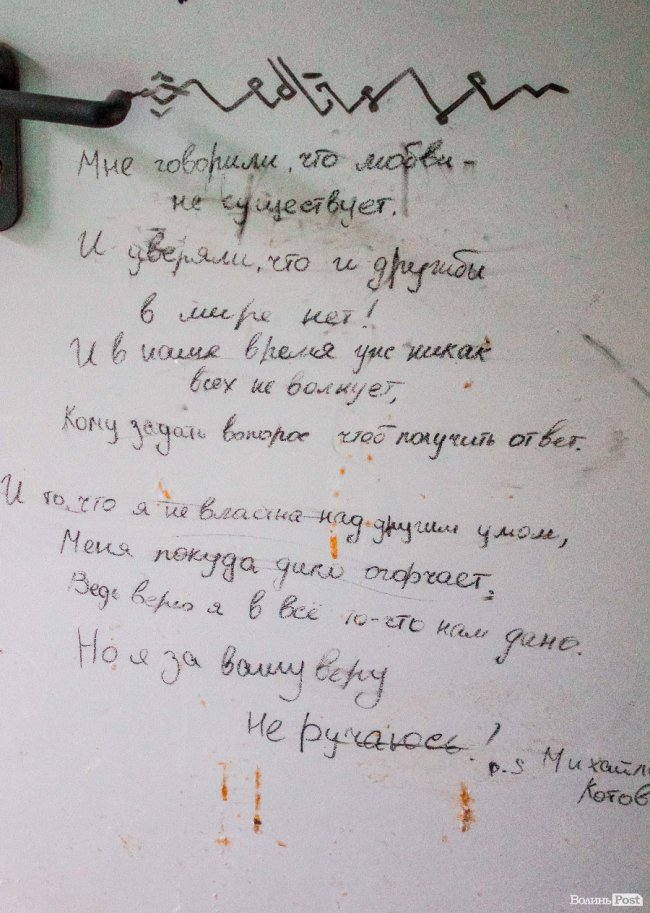 Мне говорили, что любви -
не существует.
И уверяли, что и дружбы
в мире нет!
И в наше время уже никак
всех не волнует,
Кому задать вопрос чтоб получить ответ.
И то, что я не властна над другим умом,
Меня покуда дико огорчает,
Ведь верю я в всё то-что нам дано.
Но я за вашу веру
не ручаюсь!
p.s Михайло
Котов
ВолиньPost